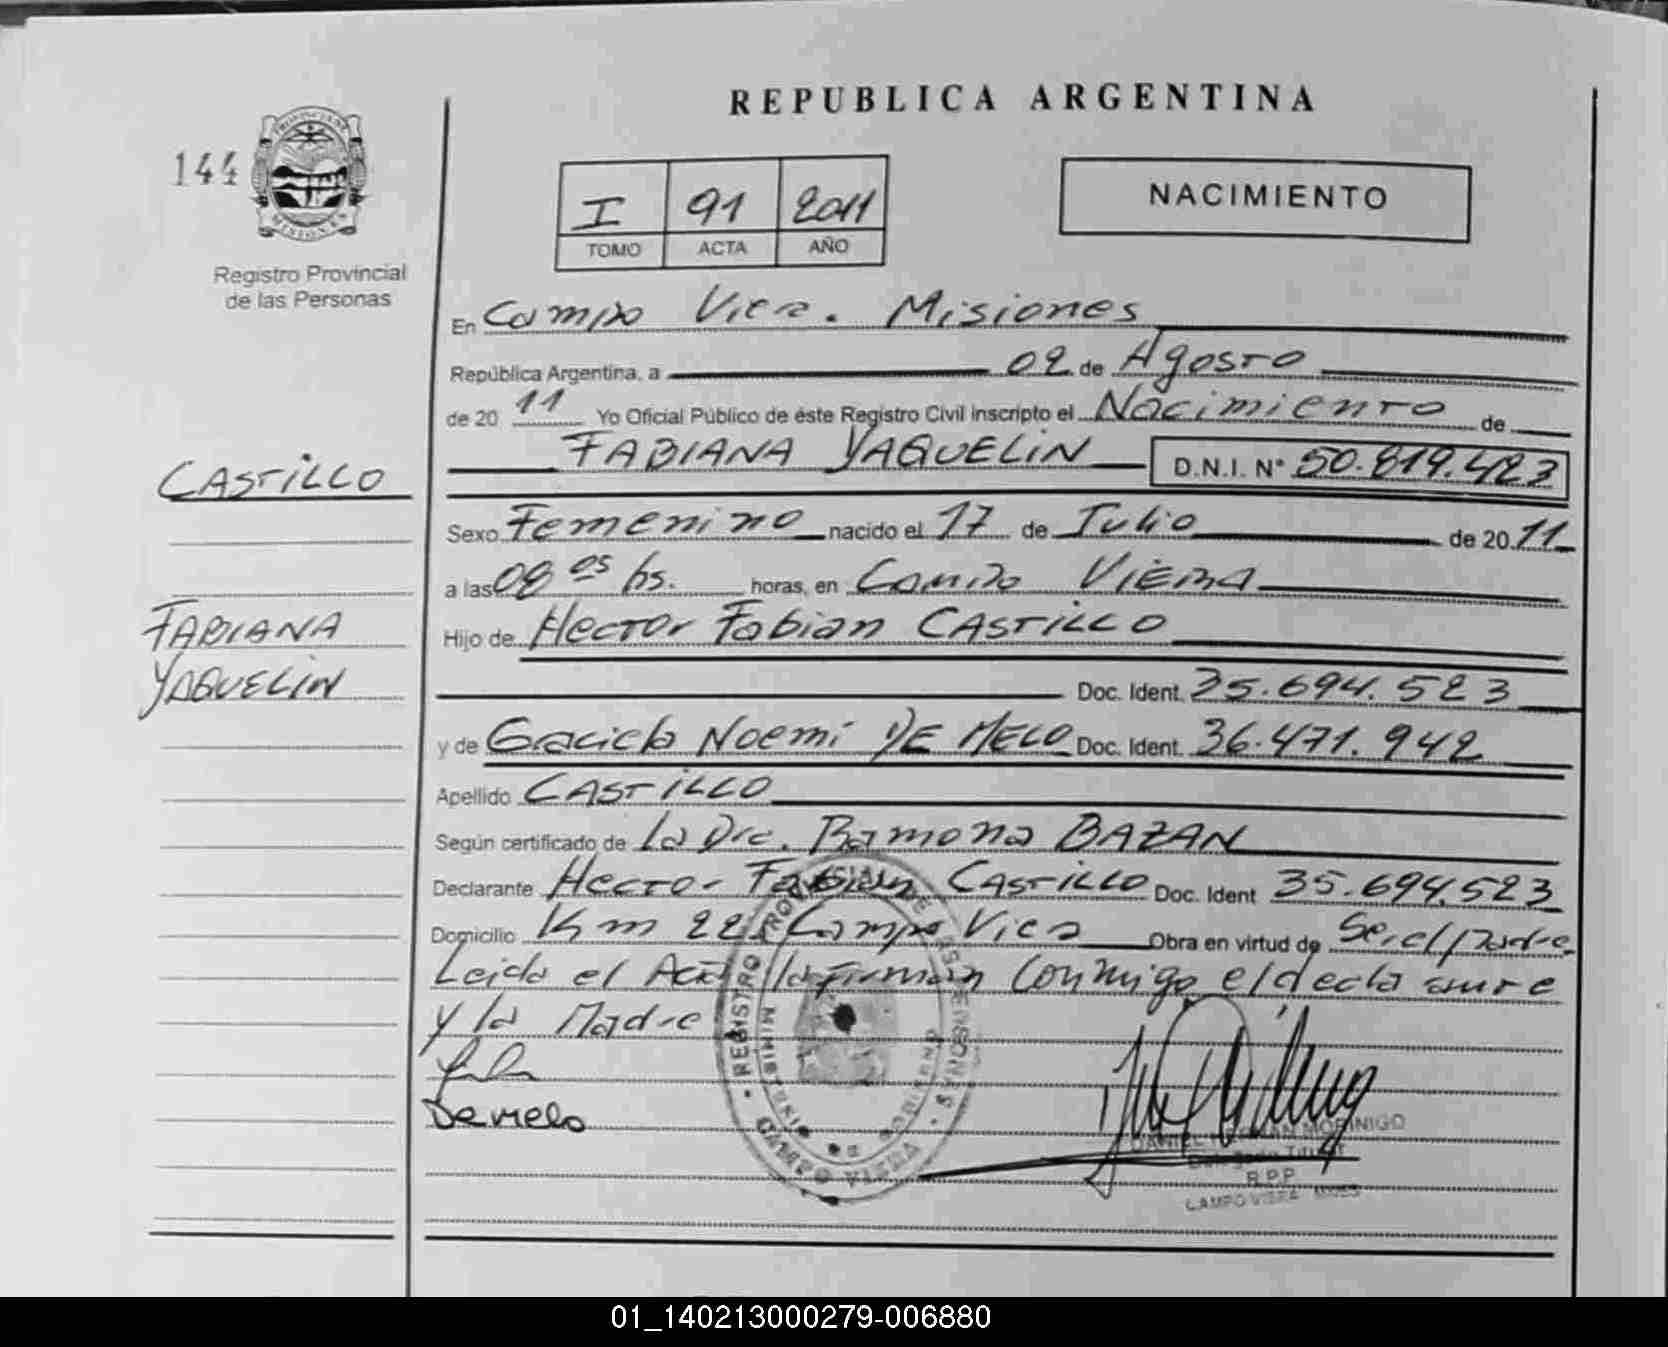 REPUBLICA ARGENTINA
144
PROVINCIA DE MISIONES
Registro Provincial
de las Personas
I 91 2011
TOMO ACTA AÑO
NACIMIENTO
En Campo Viera. Misiones
República Argentina, a 02 de Agosto
de 20 11 Yo Oficial Público de éste Registro Civil inscripto el Nacimiento de
FABIANA YAQUELIN D.N.I. N° 50.819.423
CASTILLO
Sexo Femenino nacido el 17 de Julio de 20 11
a las 08 05 hs. horas, en Campo VIERA
FABIANA
YAQUELIN
Hijo de Hector Fabian CASTILLO
Doc. Ident. 35.694.523
y de Graciela Noemi DE MELO Doc. Ident. 36.471.942
Apellido CASTILLO
Según certificado de la Dra. Ramona BAZAN
Declarante Hector Fabian CASTILLO Doc. Ident 35.694.523
Domicilio Km 22 Campo Viera Obra en virtud de Ser el Padre
Leida el Acta la firman Conmigo el declarante
y la Madre
De melo
REGISTRO PROVINCIAL DE LAS PERSONAS
MINISTERIO DE GOBIERNO
CAMPO VIERA
DANIEL MORINIGO
Delegado Titular
R.P.P
CAMPO VIERA Mnes
01_140213000279-006880